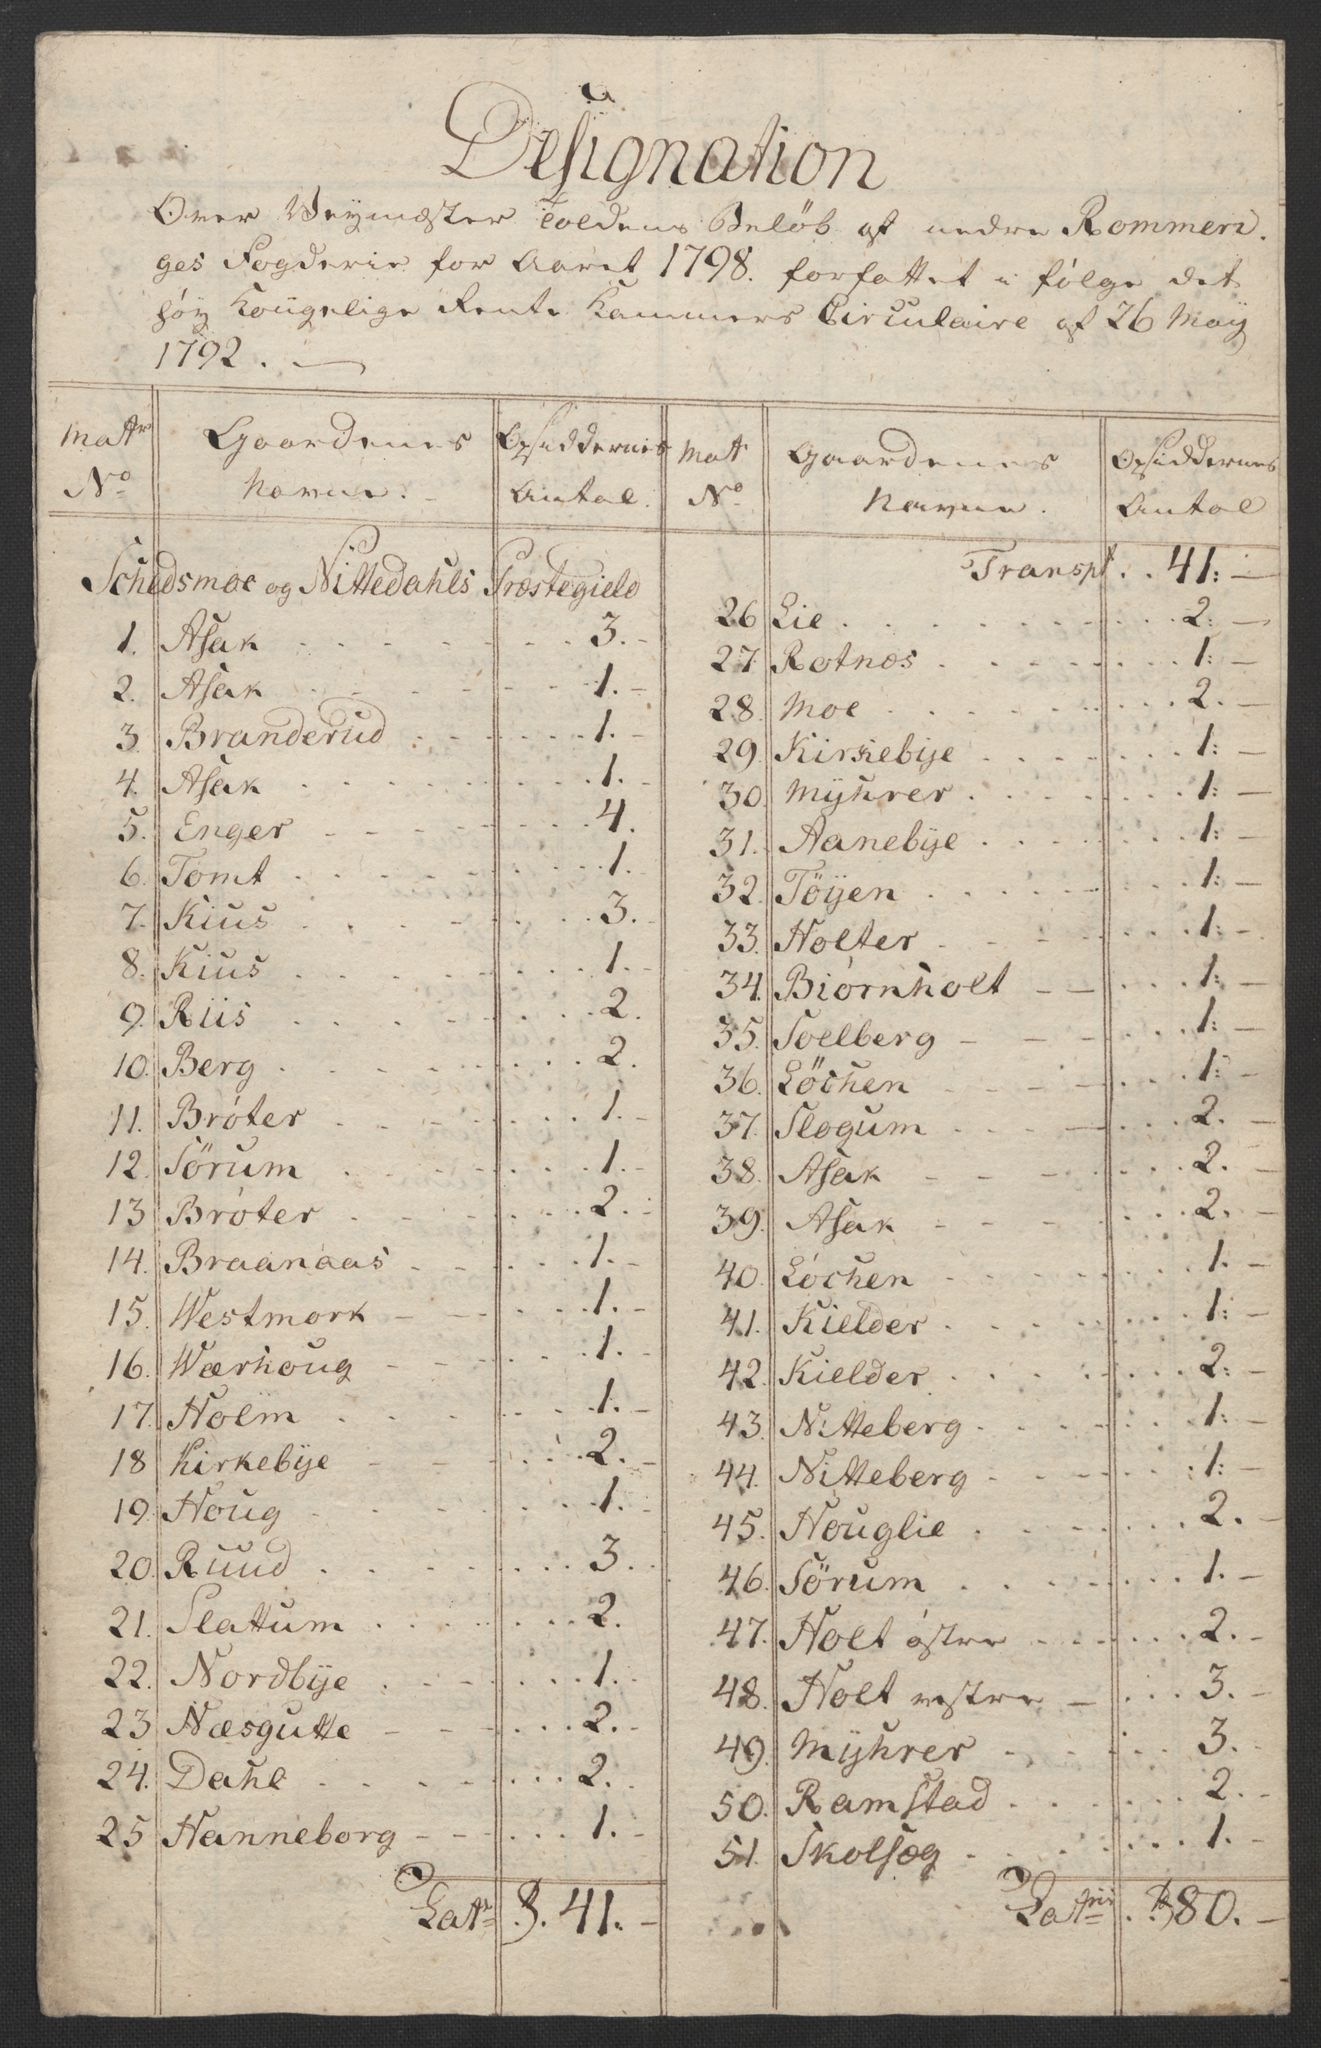 Designation
Over Veymester Toldens Beløb af nedre Rommeri-
ges Fogderie for Aaret 1798. forfattet i følge det
høy Kongelige Rente Kammers Circulaire af 26 May
1792.
Matr No | Gaardenes Navne. | Opsiddernes Antal.
Schedsmoe og Nittedahls Præstegield
1. Asak 3.
2. Asak 1.
3 Branderud 1.
4. Asak 1.
5. Enger 4.
6. Tomt 1.
7. Kius 3.
8. Kius 1.
9. Riis 2.
10. Berg 2.
11. Brøter 1.
12. Sörum 1.
13 Brøter 2.
14. Braanaas 1.
15. Westmork 1.
16. Wærhoug 1.
17. Holm 1.
18 Kirkebye 2.
19. Houg 1.
20. Ruud 3.
21. Slattum 2.
22. Nordbye 1.
23 Næsgutte 2.
24. Dahl 2.
25 Hanneborg 1.
Latr 41.
Matr No. | Gaardenes Navne. | Opsiddernes Antal
Transpt 41:
26 Lie 2:
27. Rotnæs 1:
28. Moe 2.
29. Kirkebye 1:
30. Myhrer 1:
31. Aanebye 1:
32. Töyen 1:
33. Holter 1:
34. Biørnholt 1:
35. Soelberg 1:
36. Löchen 1:
37. Slogum 2.
38. Asak 2.
39. Asak 2.
40. Løchen 1.
41. Kielder 1:
42. Kielder 2:
43. Nitteberg 1:
44. Nitteberg 1:
45. Houglie 2.
46. Sörum 1.
47. Holt østre 2.
48. Holt vestre 3.
49. Myhrer 3.
50. Ramstad 2.
51. Skolsæg 1.
Latris 80.